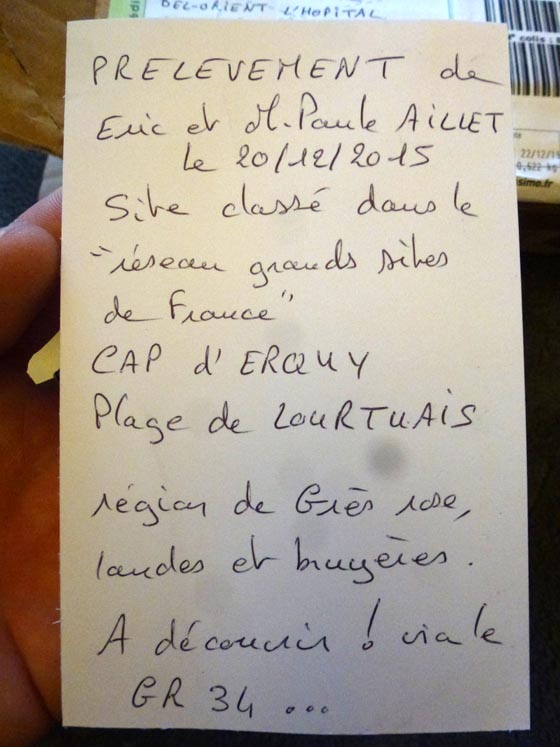 DEL-ORIENT L'HOPITAL
PRELEVEMENT de
Eric et M.Paule AILLET
le 20/12/2015
Site classé dans le
"réseau grands sites
de France"
CAP d'ERQUY
Plage de LOURTUAIS
région de Grès rose,
landes et bruyères.
A découvrir ! via le
GR 34 ...
22/12/15
0,522 kg